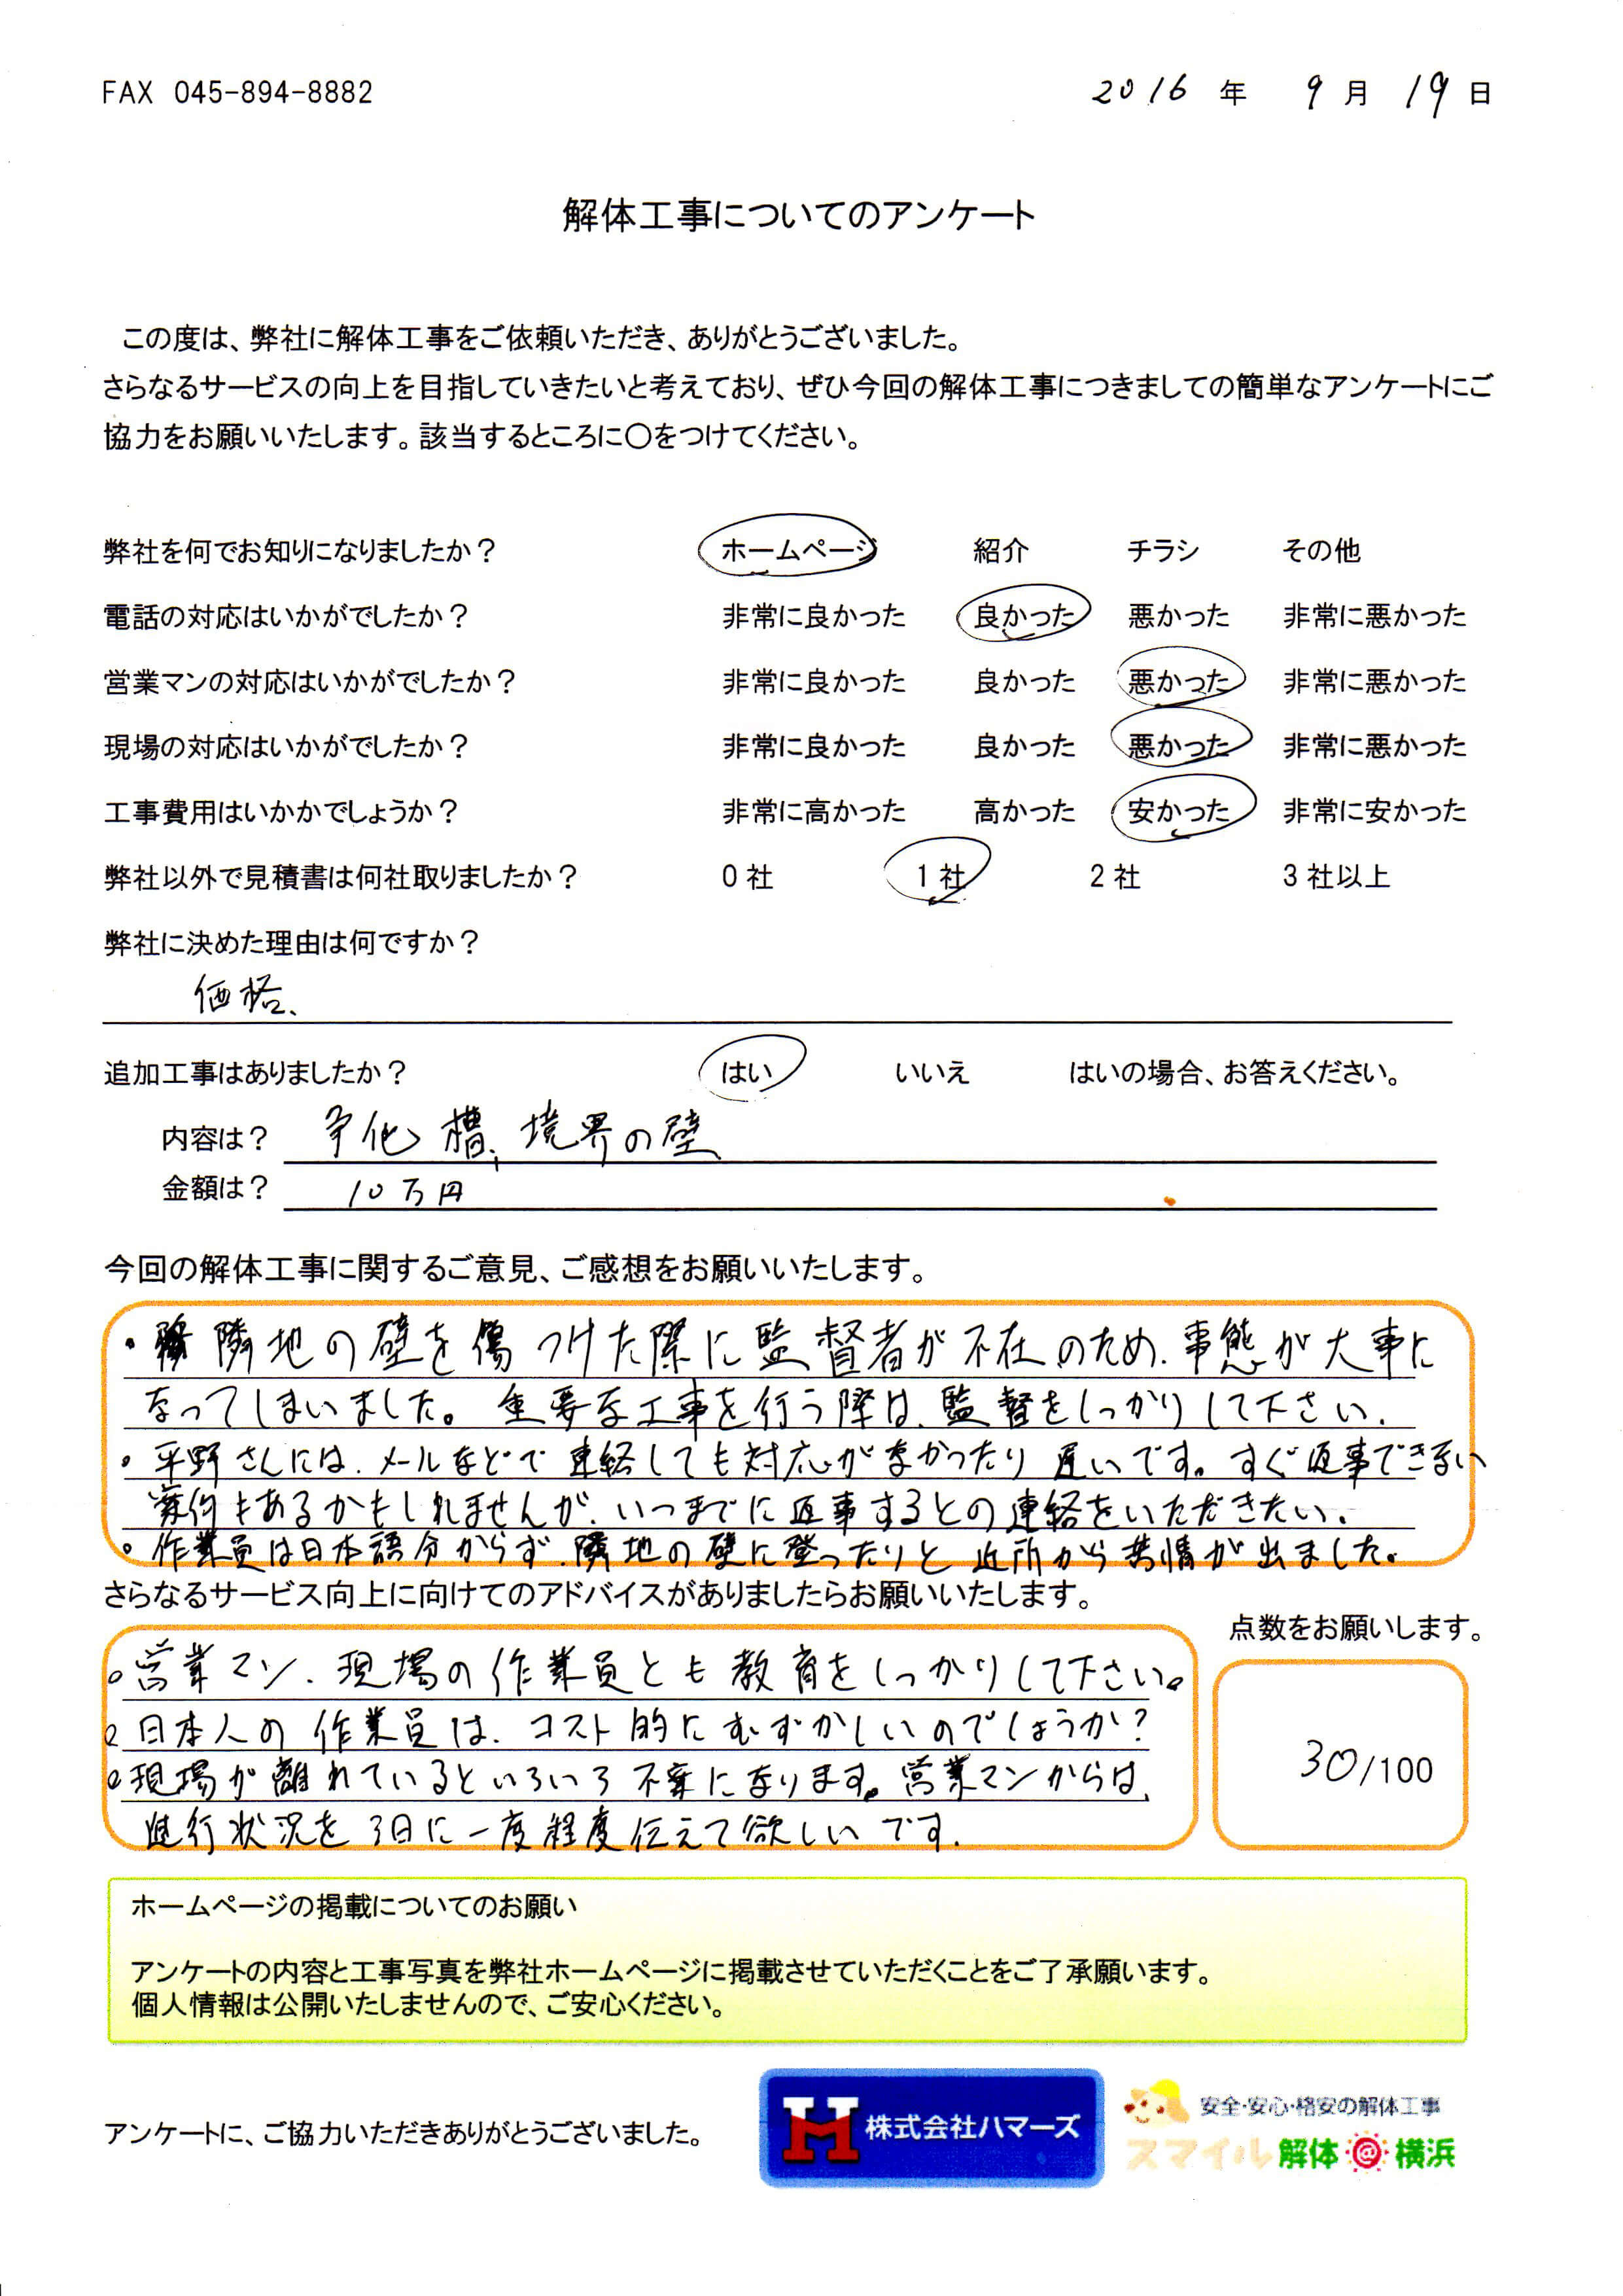 FAX 045-894-8882
2016 年 9 月 19 日
解体工事についてのアンケート
この度は、弊社に解体工事をご依頼いただき、ありがとうございました。
さらなるサービスの向上を目指していきたいと考えており、ぜひ今回の解体工事につきましての簡単なアンケートにご
協力をお願いいたします。該当するところに〇をつけてください。
弊社を何でお知りになりましたか？ ホームページ 紹介 チラシ その他
電話の対応はいかがでしたか？ 非常に良かった 良かった 悪かった 非常に悪かった
営業マンの対応はいかがでしたか？ 非常に良かった 良かった 悪かった 非常に悪かった
現場の対応はいかがでしたか？ 非常に良かった 良かった 悪かった 非常に悪かった
工事費用はいかかでしょうか？ 非常に高かった 高かった 安かった 非常に安かった
弊社以外で見積書は何社取りましたか？ 0 社 1 社 2 社 3 社以上
弊社に決めた理由は何ですか？
価格、
追加工事はありましたか？ はい いいえ はいの場合、お答えください。
内容は？ 争化槽、境界の壁
金額は？ 10万円
今回の解体工事に関するご意見、ご感想をお願いいたします。
・隣地の壁を傷つけた際に監督者が不在のため、事態が大事に
なってしまいました。重要な工事を行う際は、監督をしっかりして下さい。
・平野さんには、メールなどで連絡しても対応がなかったり遅いです。すぐ返事できない
案件もあるかもしれませんが、いつまでに返事するとの連絡をいただきたい。
・作業員は日本語分からず、隣地の壁に登ったりと近所から苦情が出ました。
さらなるサービス向上に向けてのアドバイスがありましたらお願いいたします。
点数をお願いします。
・営業マン、現場の作業員とも教育をしっかりして下さい。
・日本人の作業員は、コスト的にむずかしいのでしょうか？
・現場が離れているといろいろ不安になります。営業マンからは、
進行状況を3日に一度程度伝えて欲しいです。
30/100
ホームページの掲載についてのお願い
アンケートの内容と工事写真を弊社ホームページに掲載させていただくことをご了承願います。
個人情報は公開いたしませんので、ご安心ください。
アンケートに、ご協力いただきありがとうございました。
株式会社ハマーズ
安全・安心・格安の解体工事
スマイル解体@横浜